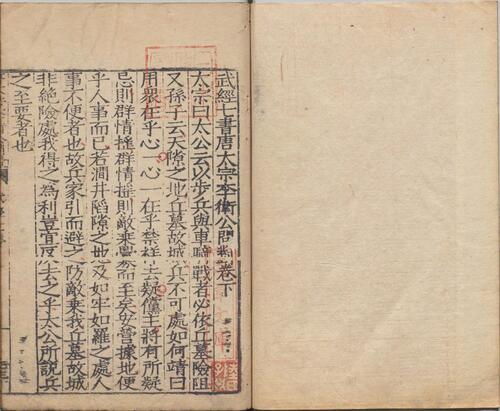 武經七書唐太宗李衛公問對卷下
太宗曰太公云以步兵與車騎戰者必依丘墓險阻
又孫子云天隙之地丘墓故城兵不可處如何靖曰
用衆在乎心一心一在乎禁祥去疑儻主將有所疑
忌則群情搖群情搖則敵乘釁而至矣安營據地便
乎人事而已若澗井陷隙之地及如牢如羅之處人
事不便者也故兵家引而避之防敵乘我丘墓故城
非絕險處我得之為利豈宜反去之乎太公所說兵
之至要者也